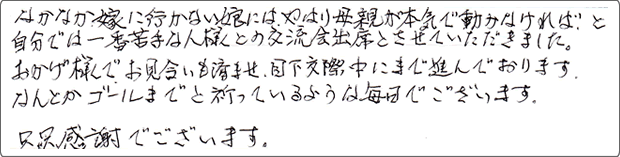 なかなか嫁に行かない娘には、やはり母親が本気で動かなければ!と
自分では一番苦手な人様との交流会出席とさせていただきました。
おかげ様でお見合いも済ませ、目下交際中にまで進んでおります。
なんとかゴールまでと祈っているような毎日でございます。
只只感謝でございます。